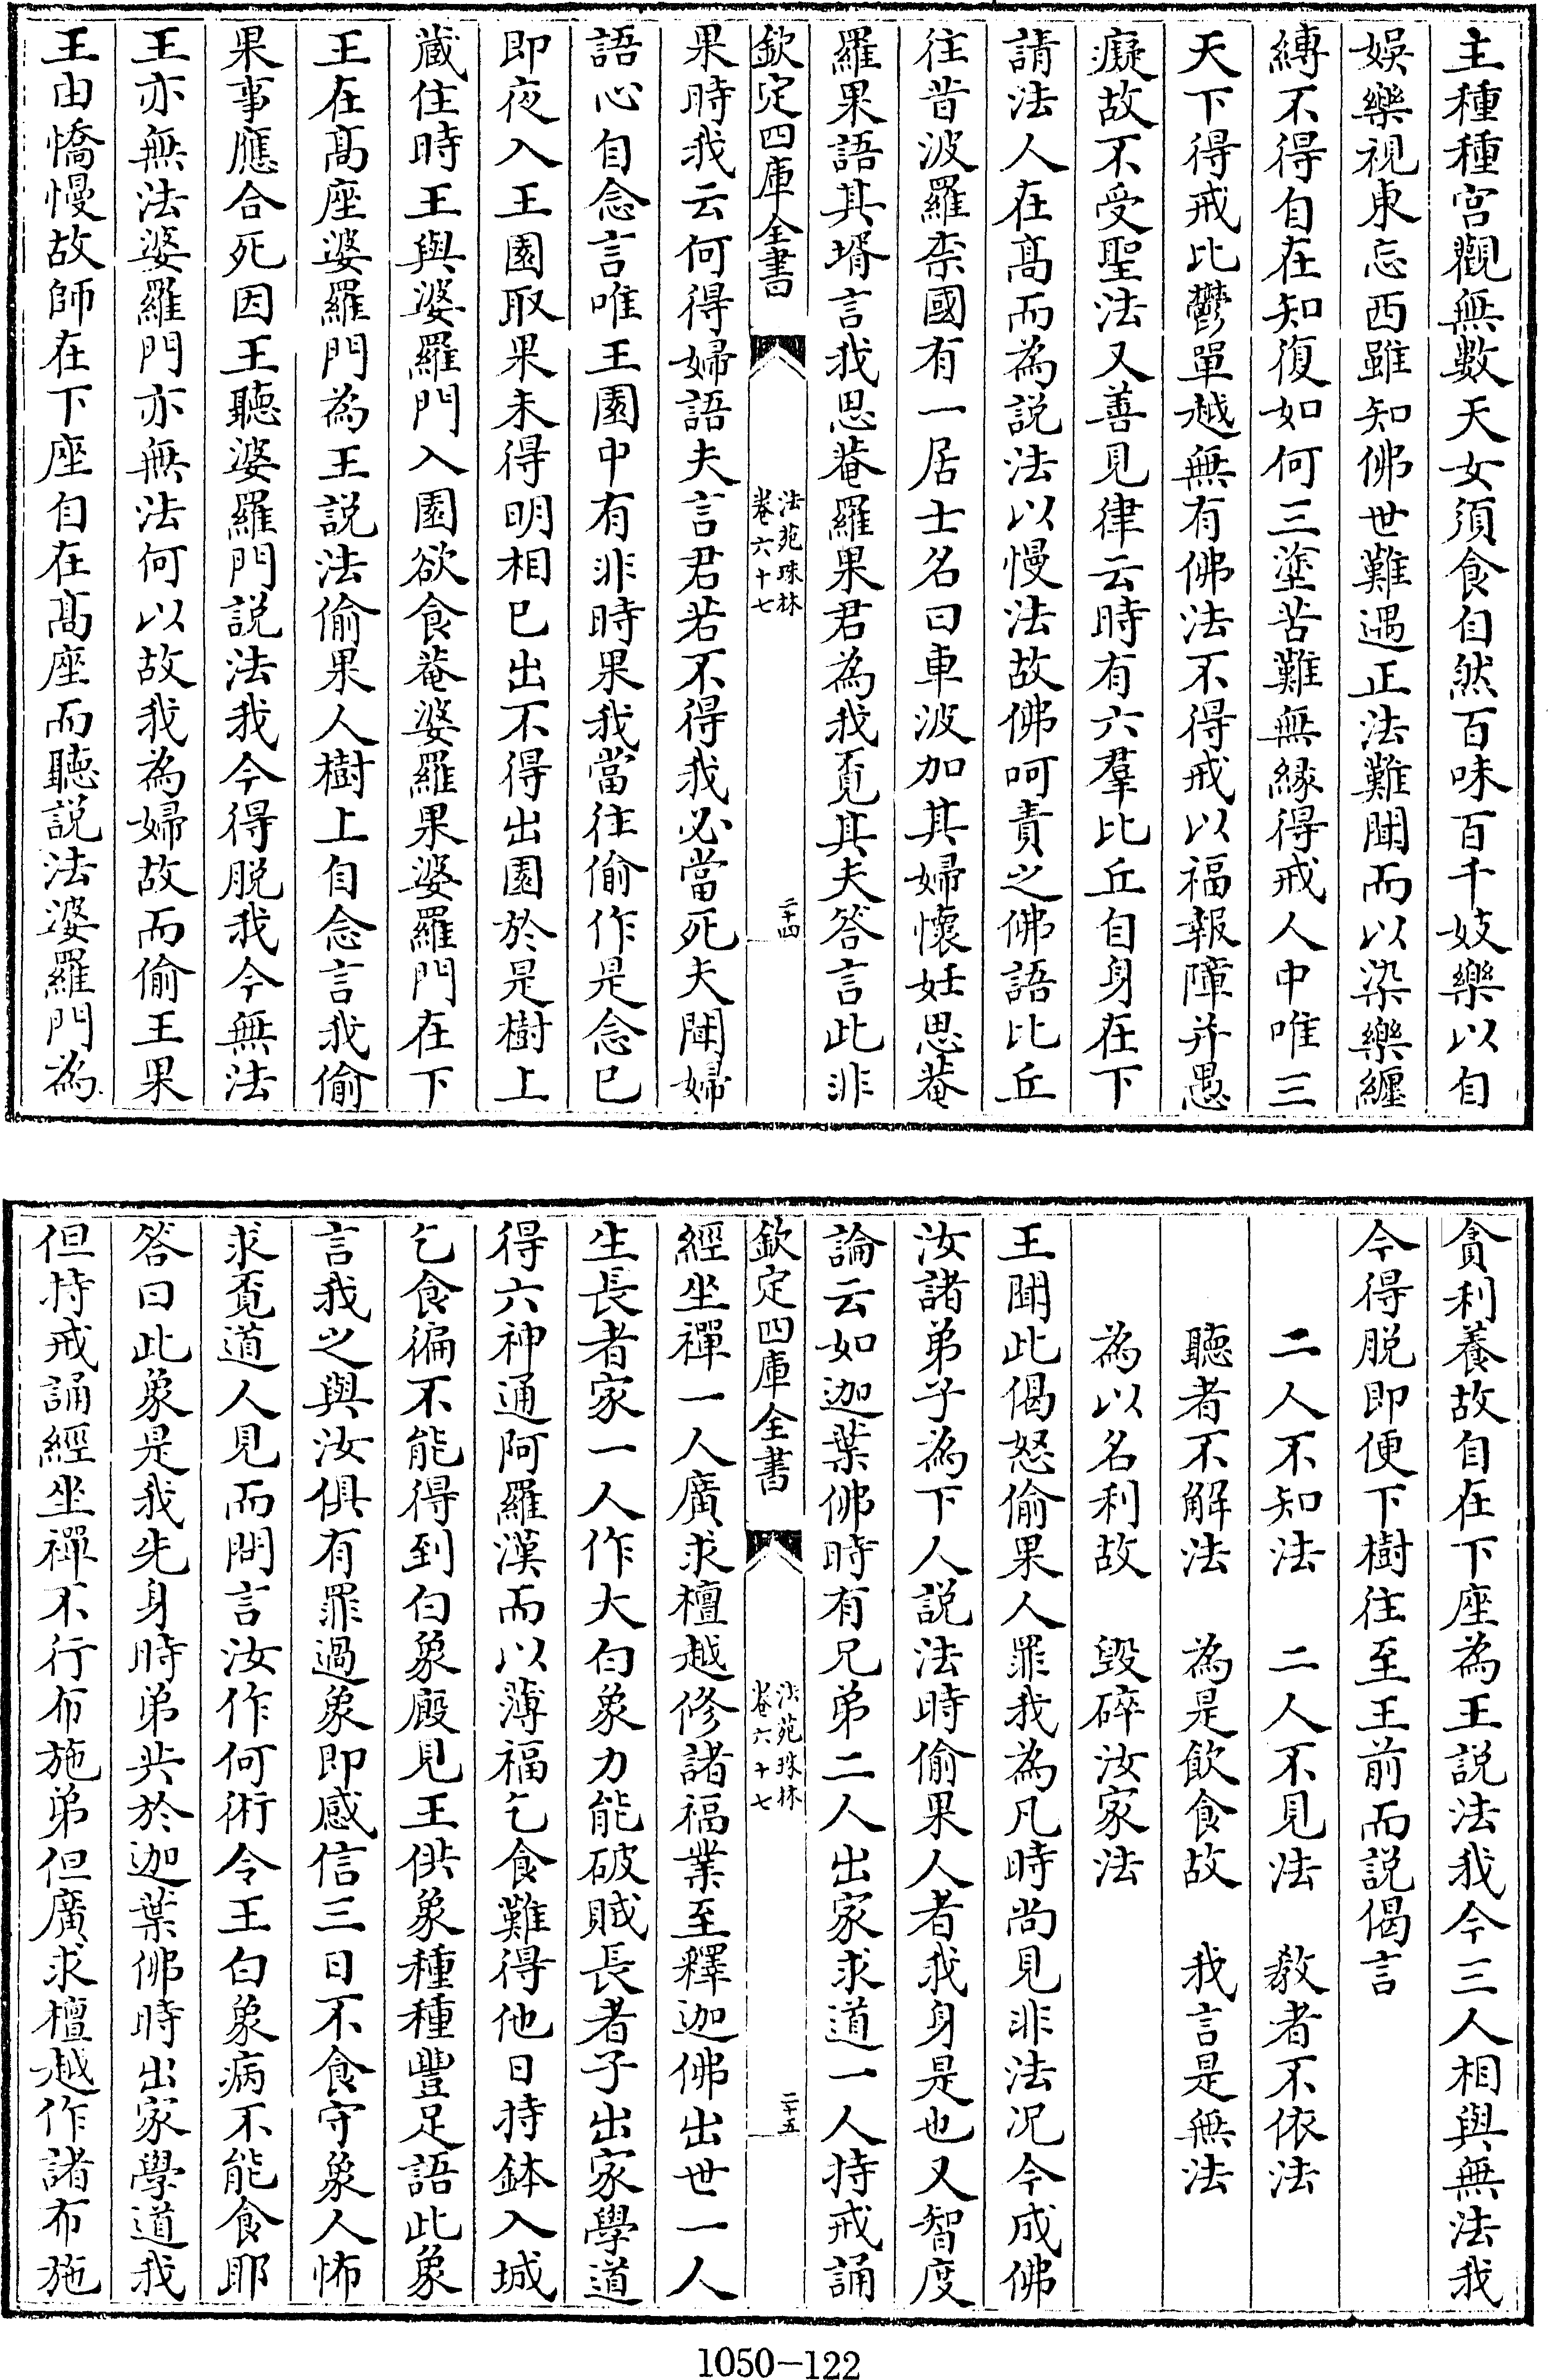 主種種宫觀無數天女須食自然百味百千妓樂以自
娱樂視東忘西雖知佛世難遇正法難聞而以染樂纒
縛不得自在知復如何三塗苦難無縁得戒人中唯三
天下得戒比鬱單越無有佛法不得戒以福報障并愚
癡故不受聖法又善見律云時有六羣比丘自身在下
請法人在髙而為説法以慢法故佛呵責之佛語比丘
往昔波羅柰國有一居士名曰車波加其婦懐妊思菴
羅果語其壻言我思菴羅果君為我覓其夫答言此非
欽定四庫全書
法苑珠林
卷六十七
二十四
果時我云何得婦語夫言君若不得我必當死夫聞婦
語心自念言唯王園中有非時果我當往偷作是念已
即夜入王園取果未得明相已出不得出園於是樹上
藏住時王與婆羅門入園欲食菴婆羅果婆羅門在下
王在髙座婆羅門為王説法偷果人樹上自念言我偷
果事應合死因王聽婆羅門説法我今得脱我今無法
王亦無法婆羅門亦無法何以故我為婦故而偷王果
王由憍慢故師在下座自在髙座而聽説法婆羅門為
貪利養故自在下座為王説法我今三人相與無法我
今得脱即便下樹往至王前而説偈言
二人不知法　二人不見法　教者不依法
聽者不解法　為是飲食故　我言是無法
為以名利故　毁碎汝家法
王聞此偈怒偷果人罪我為凡時尚見非法况今成佛
汝諸弟子為下人説法時偷果人者我身是也又智度
論云如迦葉佛時有兄弟二人出家求道一人持戒誦
欽定四庫全書
法苑珠林
卷六十七
二十五
經坐禪一人廣求檀越修諸福業至釋迦佛出世一人
生長者家一人作大白象力能破賊長者子出家學道
得六神通阿羅漢而以薄福乞食難得他日持鉢入城
乞食徧不能得到白象廄見王供象種種豐足語此象
言我之與汝俱有罪過象即感信三日不食守象人怖
求覓道人見而問言汝作何術令王白象病不能食耶
答曰此象是我先身時弟共於迦葉佛時出家學道我
但持戒誦經坐禪不行布施弟但廣求檀越作諸布施
1050-122